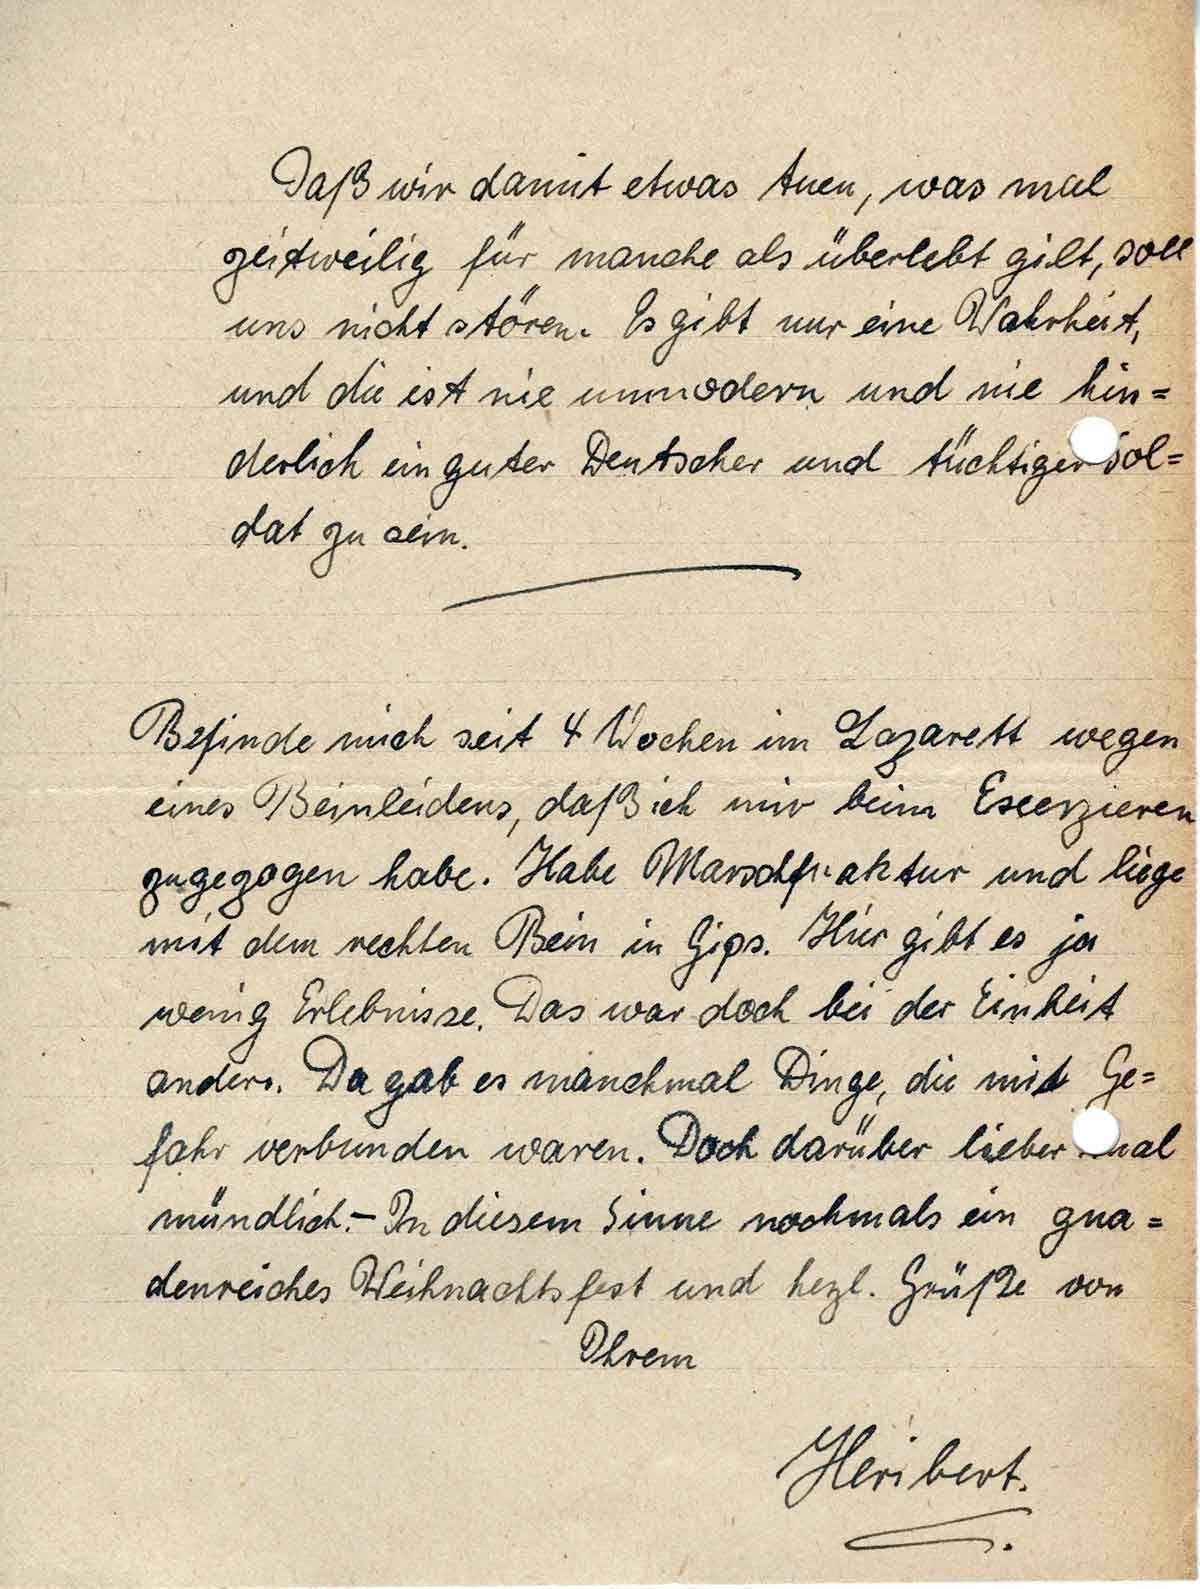 Daß wir damit etwas tuen, was mal
zeitweilig für manche als überlebt gilt, soll
uns nicht stören. Es gibt nur eine Wahrheit,
und die ist nie unmodern und nie hin=
derlich ein guter Deutscher und tüchtiger Sol=
dat zu sein.
Befinde mich seit 4 Wochen im Lazarett wegen
eines Beinleidens, daß ich mir beim Exerzieren
zugezogen habe. Habe Marschfraktur und liege
mit dem rechten Bein in Gips. Hier gibt es ja
wenig Erlebnisse. Das war doch bei der Einheit
anders. Da gab es manchmal Dinge, die mit Ge=
fahr verbunden waren. Doch darüber lieber mal
mündlich.– In diesem Sinne nochmals ein gna=
denreiches Weihnachtsfest und hezl. Grüße von
Ihrem
Heribert.